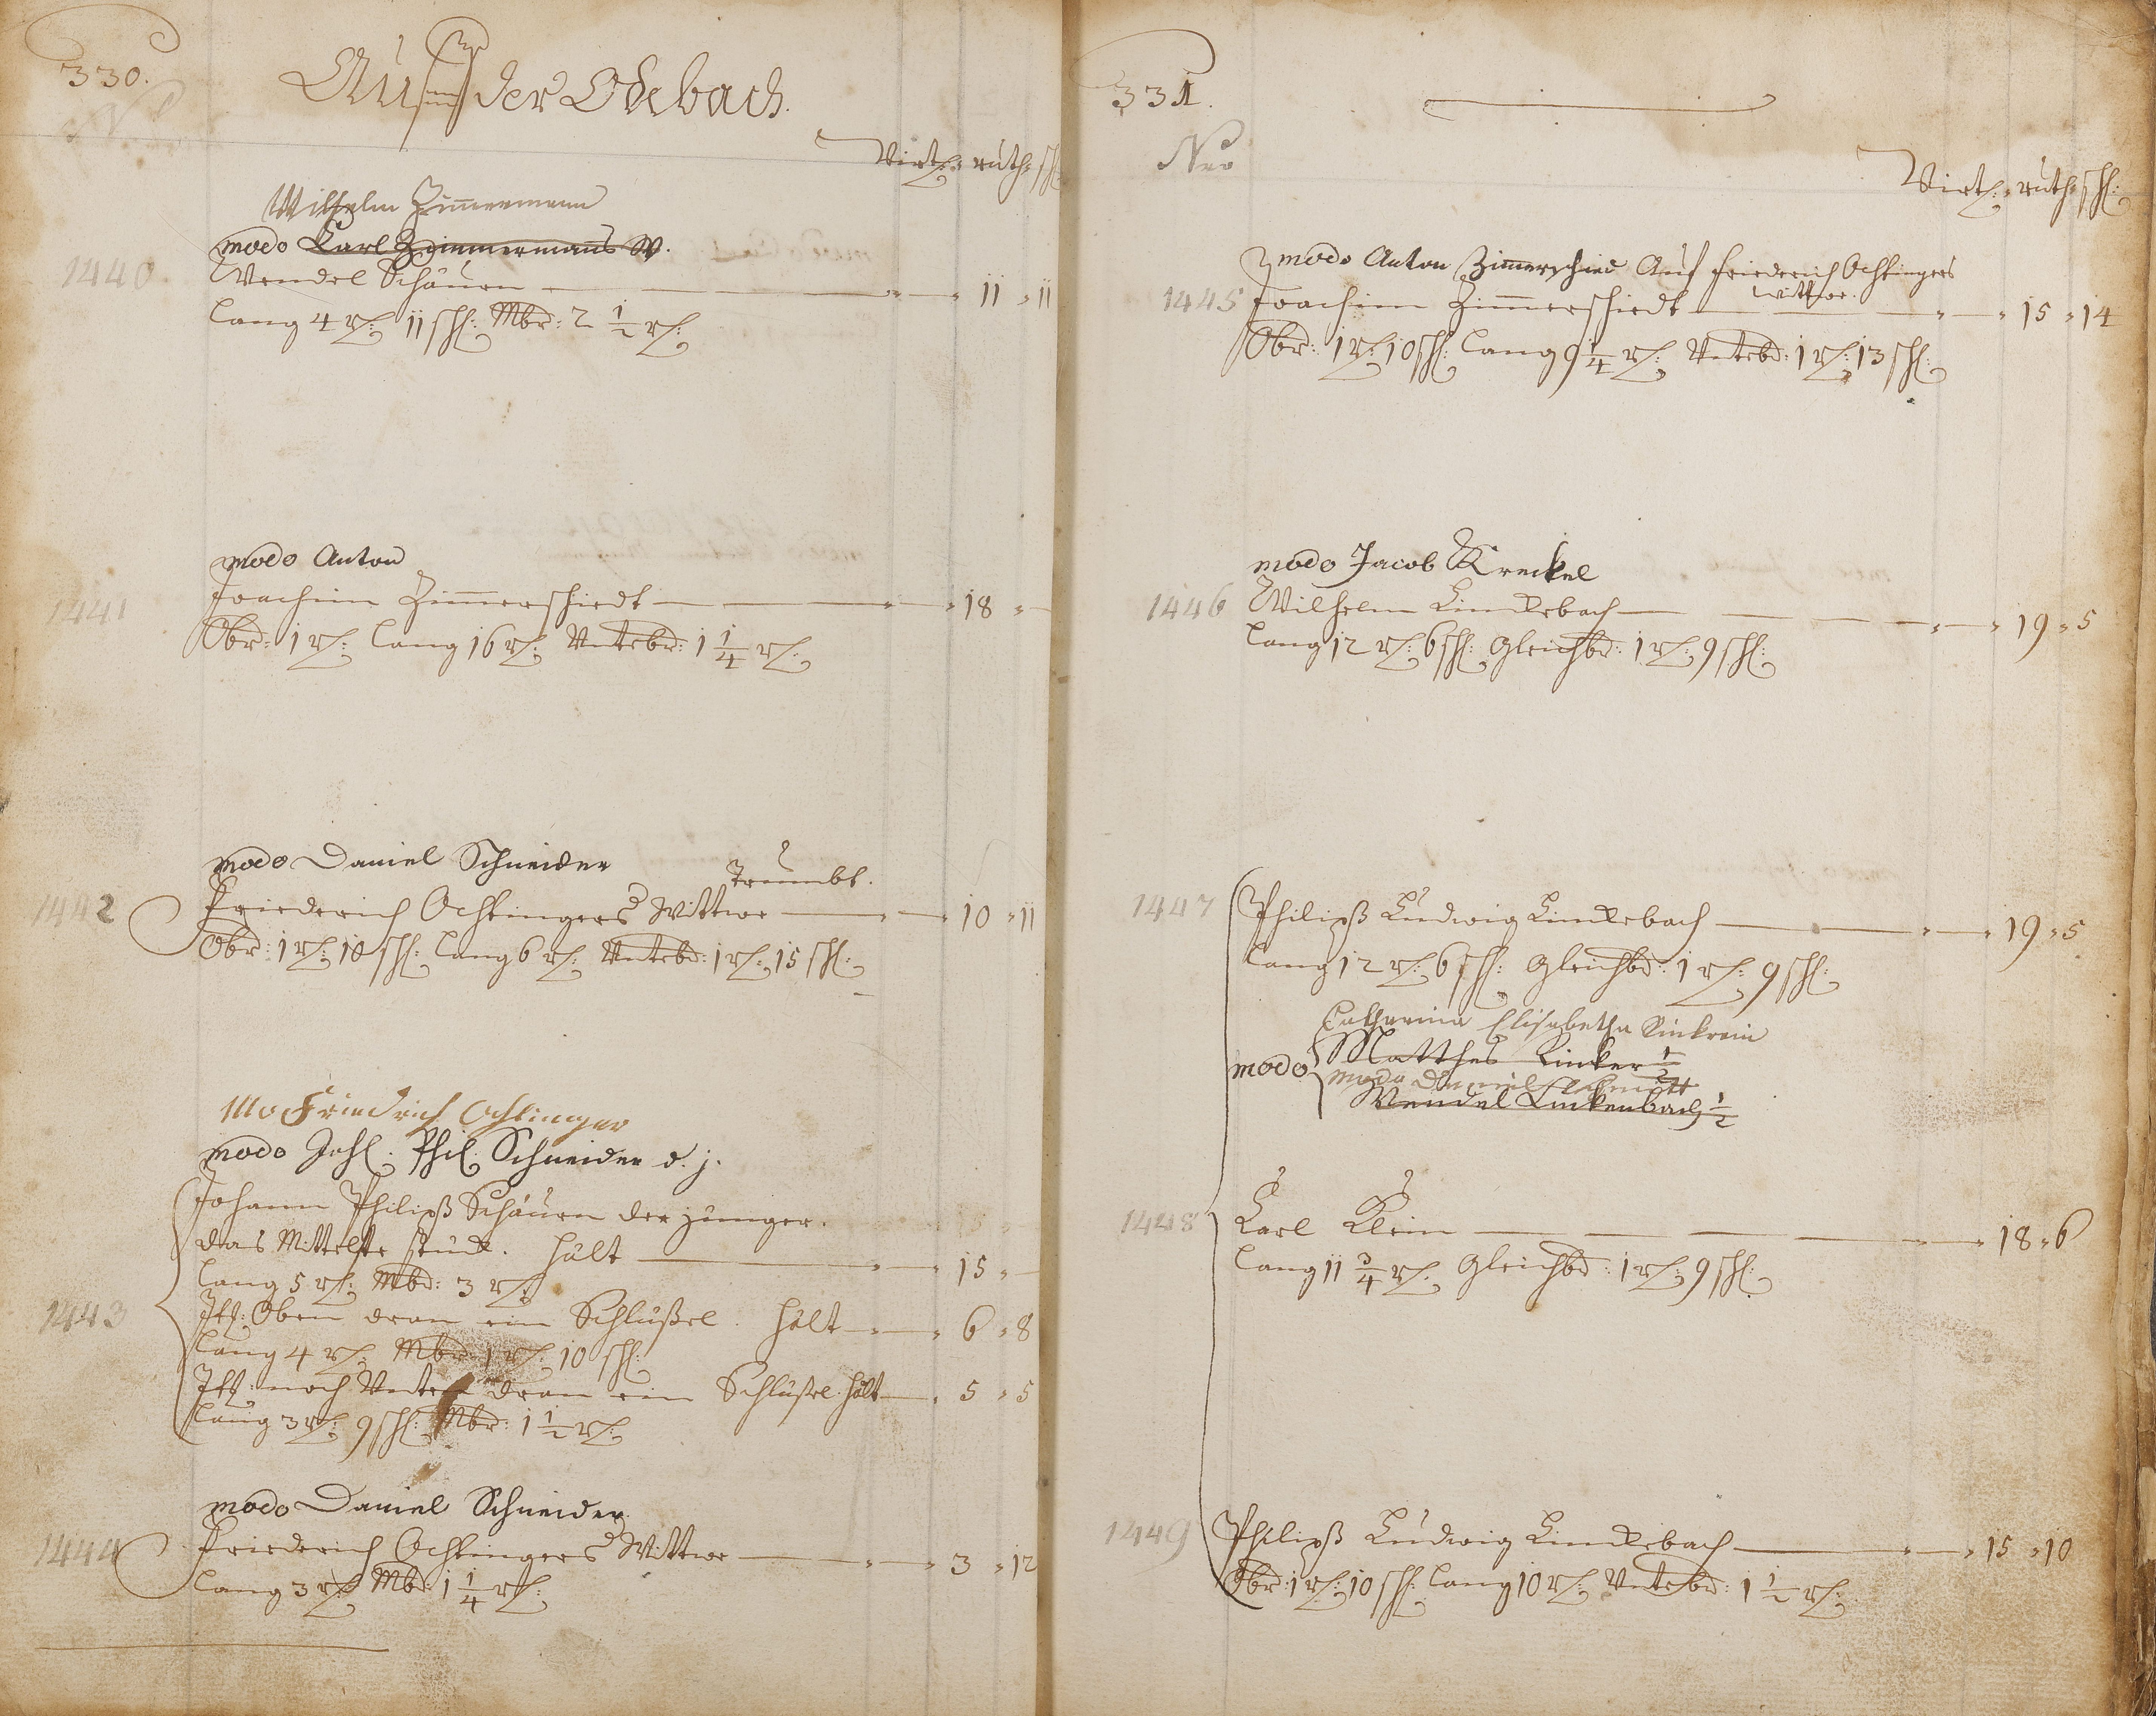 330.
Auf der Odebach.
Virtl: ruth: schl:
Wilhelm Zimmermann
modo Carl Zimmermans W.
1440 Wendel Schäurn — 11 11
lang 4 r: 11 schl: Mbr: 2 1/2 r:
modo Anton
1441 Joachim Zimmerschiedt — 18 —
Obr: 1 r: lang 16 r: Untrbr: 1 1/4 r:
modo Daniel Schneider
1442 Friederich Ochtingers Wittwe — 10 11
Obr: 1 r: 10 schl: lang 6 r: Untrbr: 1 r: 15 schl:
Mo Friedrich Ochtinger
modo Joh: Phil: Schneider d. j.
Johann Philipß Schäurn der jünger.
das Mittelste stück. hält — 15 —
lang 5 r: Mbr: 3 r:
1443 Itt: Oben dran ein Schlüßel. hält — 6 8
lang 4 r: Mbr: 1 r: 10 schl:
Itt: noch Unten dran ein Schlüßel hält — 5 5
lang 3 r: 9 schl: Mbr: 1 1/2 r:
modo Daniel Schneider
1444 Friederich Ochtingers Wittwe — 3 12
lang 3 r: Mbr: 1 1/4 r:
331.
Nro
Virtl: ruth: schl:
modo Anton Zimmerschied Auf Friederich Ochtingers
wittwe.
1445 Joachim Zimmerschiedt — 15 14
Obr: 1 r: 10 schl: lang 9 1/4 r: Untrbr: 1 r: 13 schl:
modo Jacob Kreckel
1446 Wilhelm Linckebach — 19 5
lang 12 r: 6 schl: Gleichbr: 1 r: 9 schl:
1447 Philipß Ludwig Linckebach — 19 5
lang 12 r: 6 schl: Gleichbr: 1 r: 9 schl:
Catharina Elisabetha Rinkrin
modo Matthes Rinker 1/2
modo Daniel Schmitt
Wendel Linckenbach 1/2
1448 Carl Klein — 18 6
lang 11 3/4 r: Gleichbr: 1 r: 9 schl:
1449 Philipß Ludwig Linckebach — 15 10
Obr: 1 r: 10 schl: lang 10 r: Untrbr: 1 1/2 r: